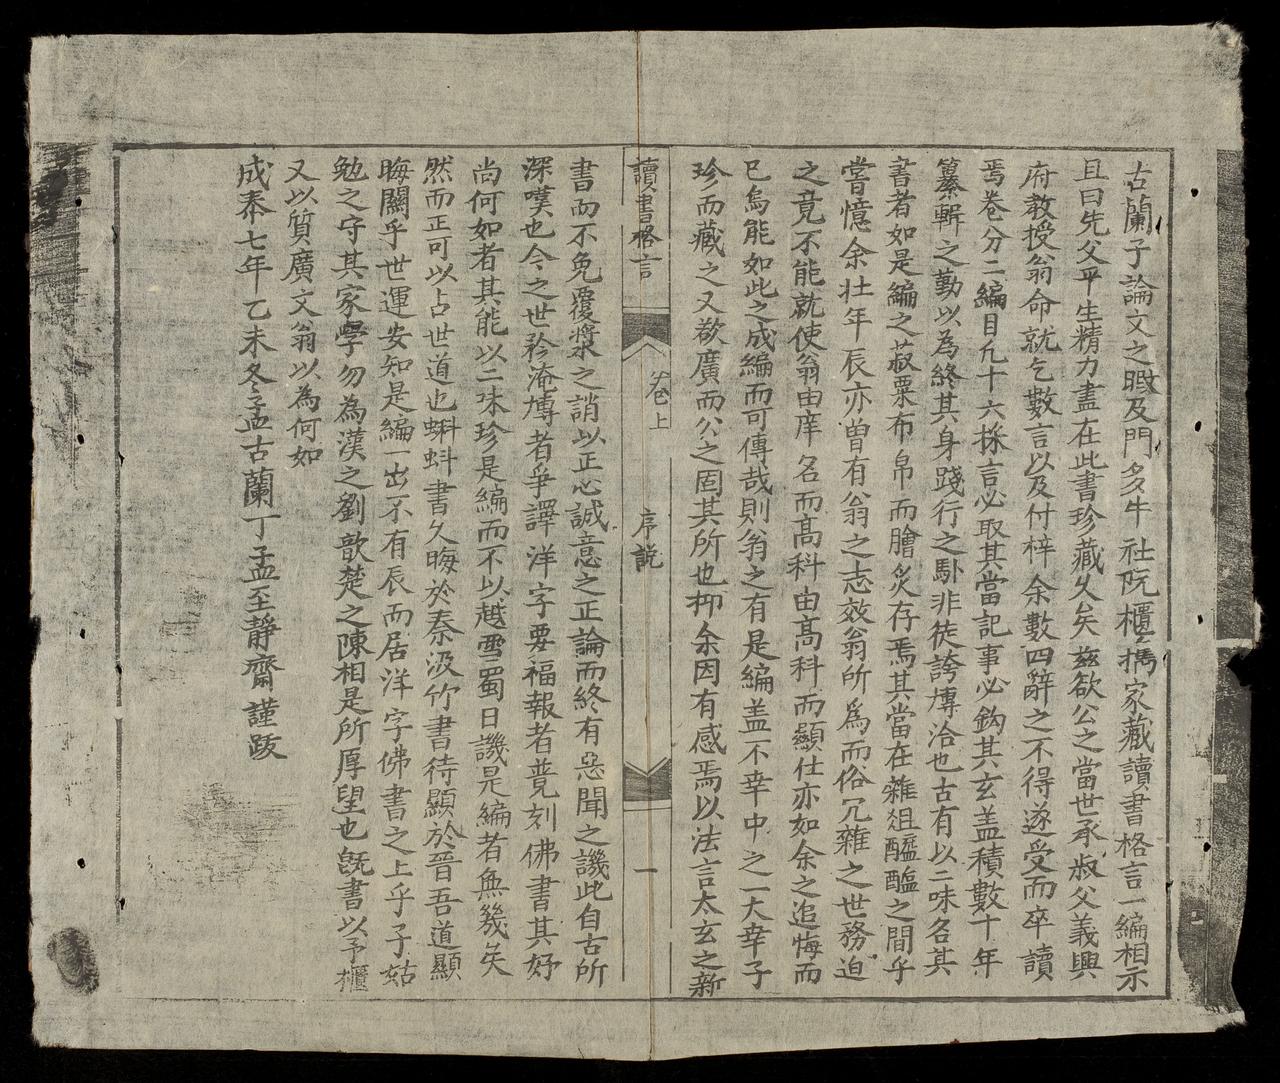 古蘭子論文之暇及門多牛社阮櫃携家藏讀書格言一編相示
且曰先父平生精力盡在此書珍藏久矣茲欲公之當世承叔父義興
府教授翁命就乞數言以及付梓余數四辭之不得遂受而卒讀
焉卷分二編目凢十六採言必取其當記事必鈎其玄盖積數十年
纂輯之勤以為終其身踐行之馱非徒誇慱洽也古有以二味名其
書者如是編之菽粟布帛而膾炙存焉其當在雜俎醯醢之間乎
嘗憶余壮年辰亦曾有翁之志效翁所為而俗冗雜之世務迫
之竟不能就使翁由庠名而髙科由髙科而顯仕亦如余之追悔而
已烏能如此之成編而可傳哉則翁之有是編盖不幸中之一大幸子
珍而藏之又欲廣而公之固其所也抑余因有感焉以法言太玄之新
讀書格言
卷上
序說
一
書而不免覆醬之誚以正心誠意之正論而終有惡聞之譏此自古所
深嘆也今之世矜淹慱者爭譯洋字要福報者競刻佛書其好
尚何如者其能以二味珍是編而不以越雪蜀日譏是編者無幾矣
然而正可以占世道也蝌蚪書久晦於秦汲竹書待顯於晉吾道顯
晦關乎世運安知是編一出不有辰而居洋字佛書之上乎子姑
勉之守其家學勿為漢之劉歆楚之陳相是所厚望也旣書以予櫃
又以質廣文翁以為何如
成泰七年乙未冬孟古蘭丁孟至靜齋謹跋